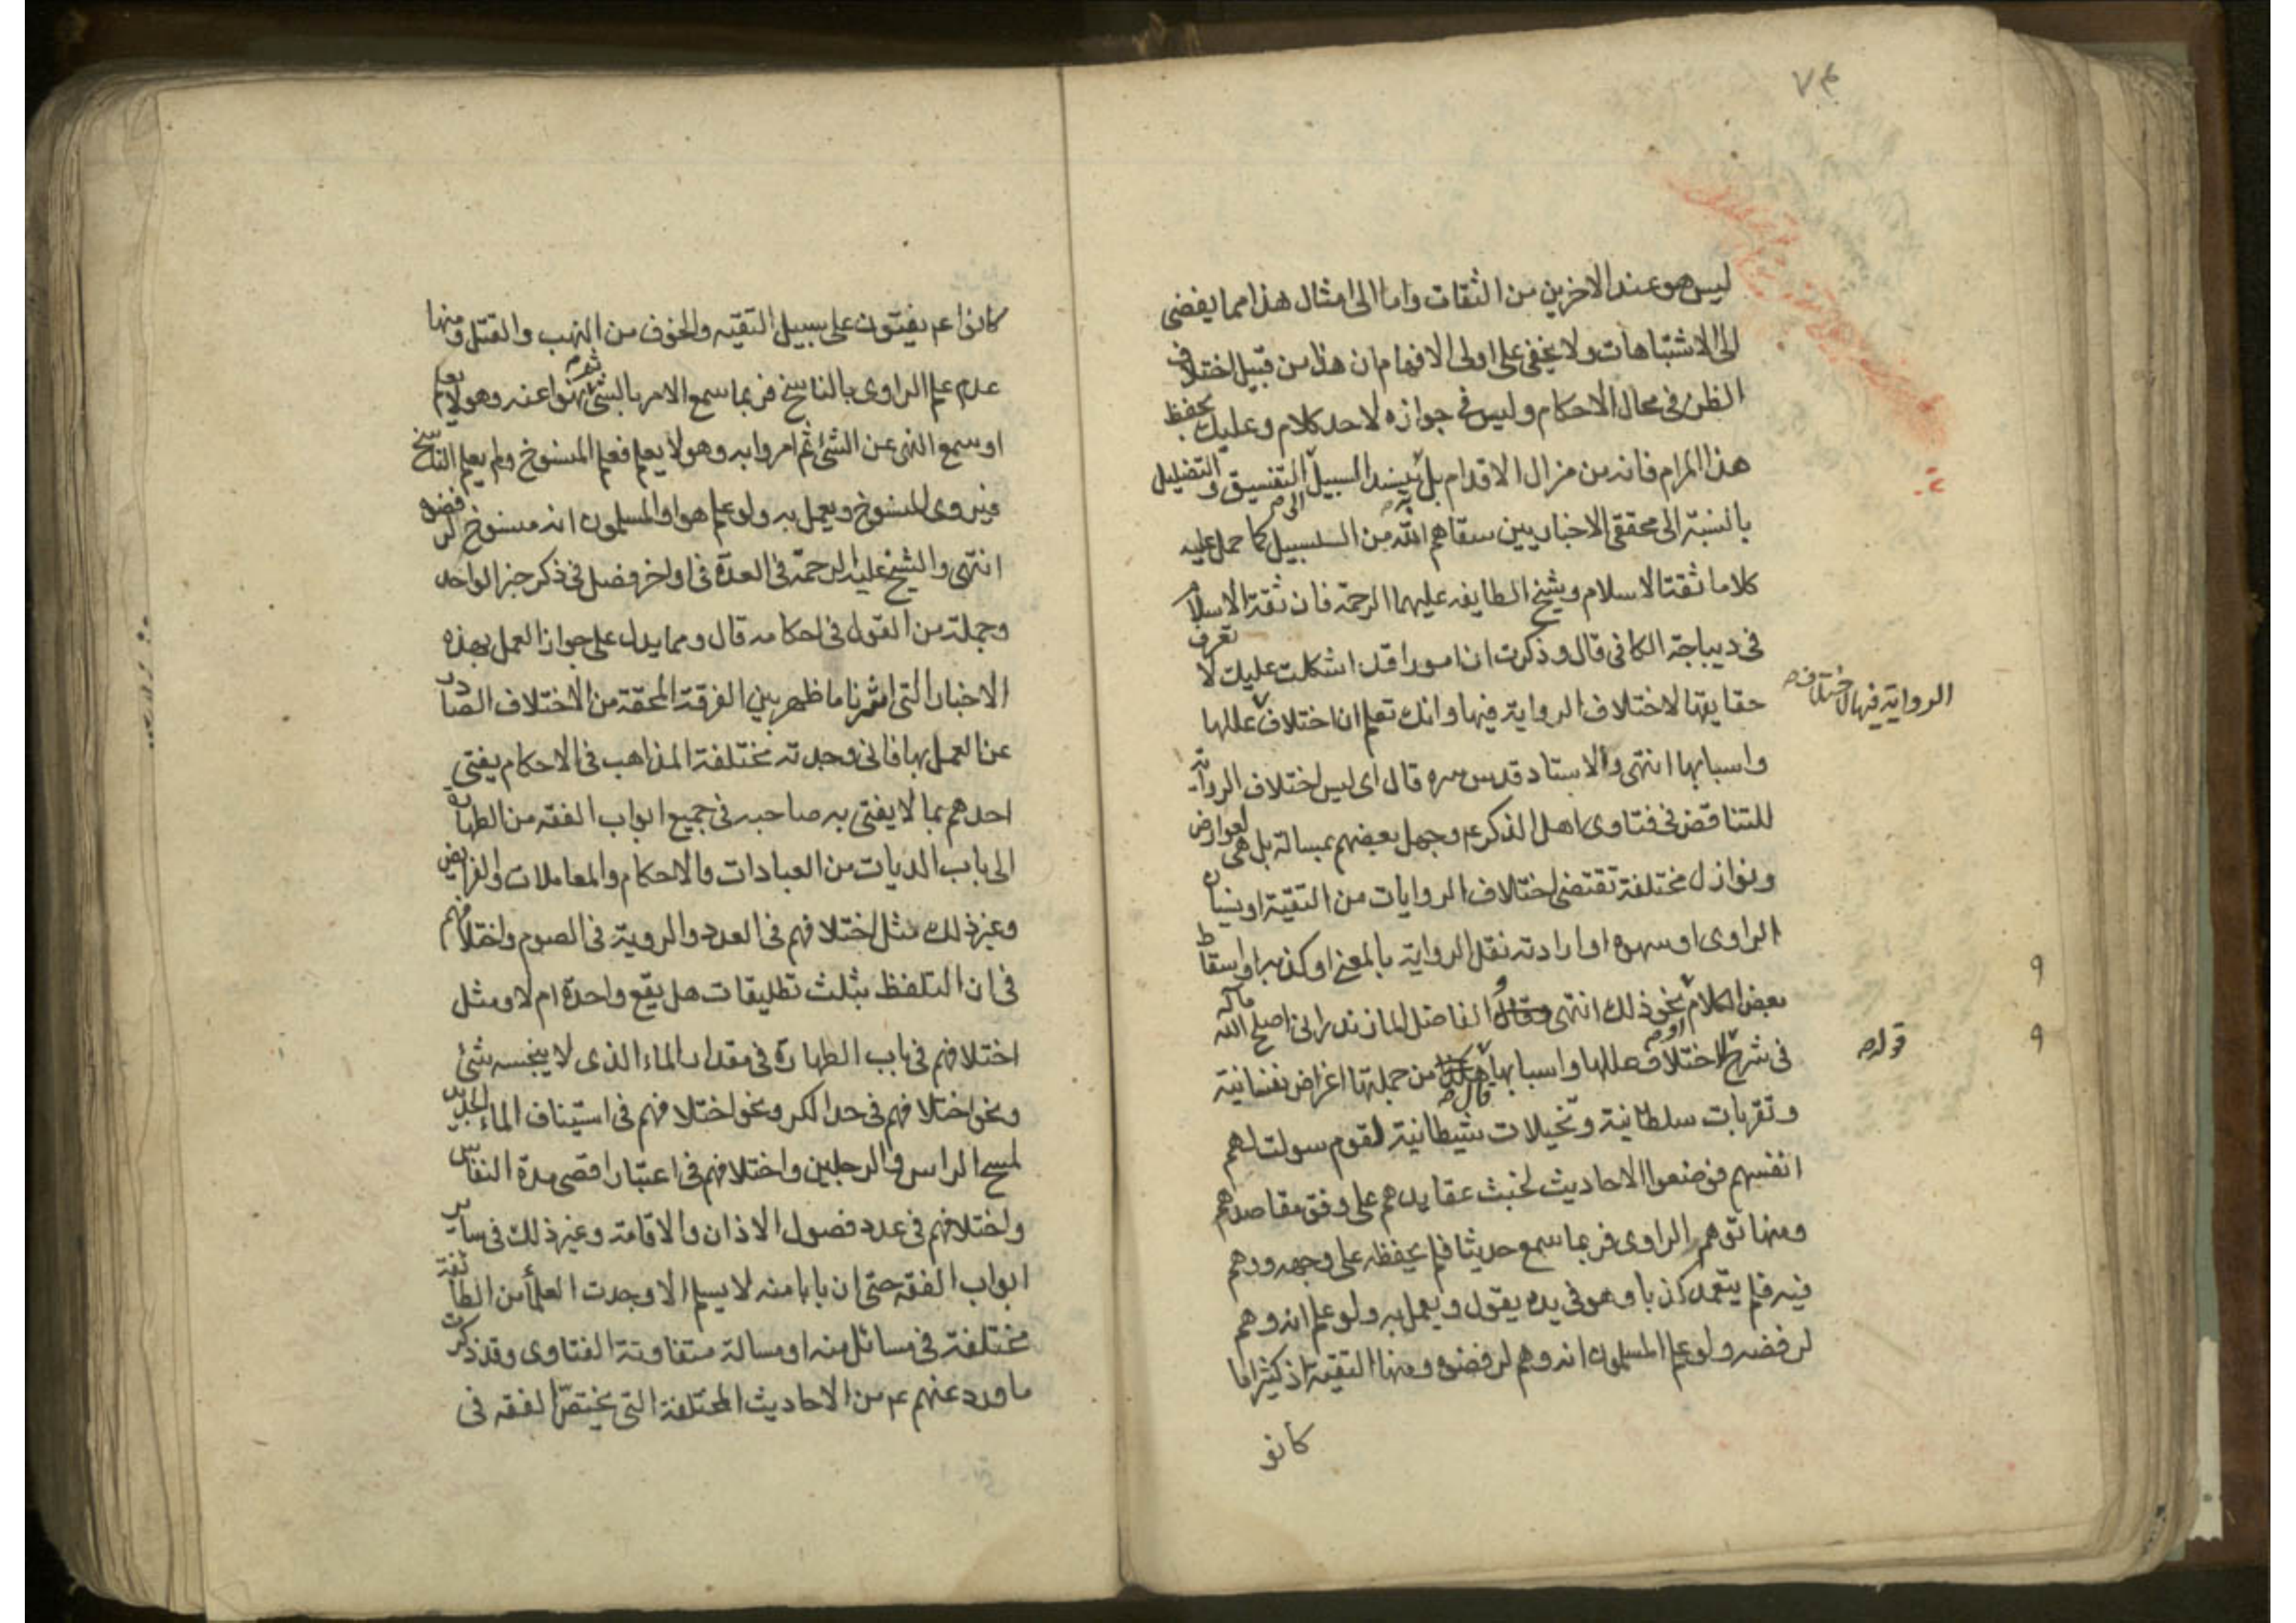 ٧٤
ليس هو عند الاخرين من الثقات واما الى امثال هذا مما يفضى
الى الاشتباهات ولا يخفى على اولى الافهام ان هذا من قبيل اختلاف
الظن فى محال الاحكام وليس فى جوازه لاحد كلام وعليك بحفظ
هذا المرام فانه من مزال الاقدام بل ينسد السبيل الى التفسيق والتضليل
بالنسبة الى محققى الاخباريين سقاهم الله من السلسبيل كما حمل عليه
كلاما ثقة الاسلام وشيخ الطايفه عليهما الرحمة فان ثقة الاسلام
فى ديباجة الكافى قال وذكرت ان امورا قد اشكلت عليك لا تعرف
حقايقها لاختلاف الرواية فيها وانك تعلم ان اختلاف عللها
الرواية فيها لاختلاف
واسبابها انتهى والاستاد قدس سره قال اى ليس اختلاف الرواية
للتناقض فى فتاوى اهل الذكر ع وجهل بعضهم بمسالة بل هى لعوارض
ونوازل مختلفة تقتضى اختلاف الروايات من التقية او نسيان
الراوى او سهوه او ارادته نقل الرواية بالمعنى او كذبه او اسقاط
بعض الكلام نحو ذلك انتهى الفاضل المازندرانى اصلح الله ماله
فى شرح اختلاف عللها واسبابها قال من جملتها اغراض نفسانية
قوله
وتقربات سلطانية وتخيلات شيطانية لقوم سولت لهم
انفسهم فوضعوا الاحاديث لخبث عقايدهم على وفق مقاصدهم
ومنها توهم الراوى فربما سمع حديثا فلم يحفظه على وجهه ووهم
فيه فلم يتعمد كذبا وهو فى يده يقول ويعمل به ولو علم انه وهم
لرفضه ولو علم المسلمون انه وهم لرفضوه ومنها التقية اذ كثيرا ما
كانو
كانوا ع يفتون على سبيل التقيه والخوف من النهب والقتل ومنها
عدم علم الراوى بالناسخ فربما سمع الامر بالشئ ثم نهوا عنه وهو لا يعلم
او سمع النهى عن الشئ ثم امروا به وهو لا يعلم فعلم المنسوخ ولم يعلم الناسخ
فيروى المنسوخ ويعمل به ولو علم هو او المسلمون انه منسوخ لرفضوه
انتهى والشيخ عليه الرحمة فى العدة فى اواخر فصل فى ذكر خبر الواحد
وجملة من القول فى احكامه قال ومما يدل على جواز العمل بهذه
الاخبار التى اشرنا ما ظهر بين الفرقة المحقة من الاختلاف الصادر
عن العمل بها فانى وجدته مختلفة المذاهب فى الاحكام يفتى
احدهم بما لا يفتى به صاحبه فى جميع ابواب الفقه من الطهارة
الى باب الديات من العبادات والاحكام والمعاملات والفرايض
وغير ذلك مثل اختلافهم فى العدد والروية فى الصوم واختلافهم
فى ان التلفظ بثلث تطليقات هل يقع واحدة ام لا ومثل
اختلافهم فى باب الطهارة فى مقدار الماء الذى لا ينجسه شئ
ونحو اختلافهم فى حد الكر ونحو اختلافهم فى استيناف الماء الجديد
لمسح الراس والرجلين واختلافهم فى اعتبار اقصى مدة النفاس
واختلافهم فى عدد فصول الاذان والاقامة وغير ذلك فى ساير
ابواب الفقه حتى ان بابا منه لا يسلم الا وجدت العلماء من الطائفة
مختلفة فى مسائل منه او مسالة متفاوتة الفتاوى وقد ذكرت
ما ورد عنهم ع من الاحاديث المختلفة التى يختص الفقه فى